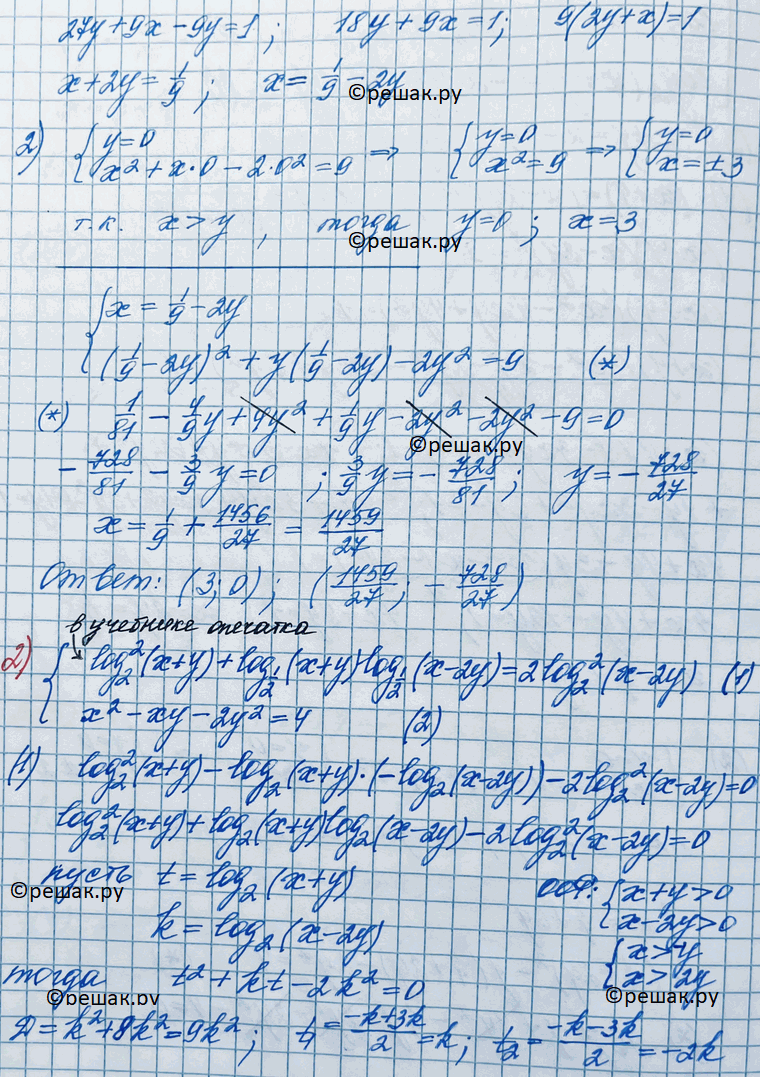 27y + 9x - 9y = 1 ; 18y + 9x = 1; 9(2y+x) = 1
x + 2y = 1/9 ; x = 1/9 - 2y
©решак.ру
2) { y=0 x² + x·0 - 2·0² = 9 ⇒ { y=0 x² = 9 ⇒ { y=0 x = ±3
т.к. x > y , тогда y=0 ; x = 3
©решак.ру
{ x = 1/9 - 2y
(1/9 - 2y)² + y(1/9 - 2y) - 2y² = 9 (*)
(*) 1/81 - 4/9 y + 4y² + 1/9 y - 2y² - 2y² - 9 = 0
©решак.ру
- 728/81 - 3/9 y = 0 ; 3/9 y = - 728/81 ; y = - 728/27
x = 1/9 + 1456/27 = 1459/27
Ответ: (3; 0) ; (1459/27 ; - 728/27)
в учебнике опечатка
2) { log₂²(x+y) + log½(x+y) log½(x-2y) = 2 log₂²(x-2y) (1)
x² - xy - 2y² = 4 (2)
(1) log₂²(x+y) - log₂(x+y)·(-log₂(x-2y)) - 2 log₂²(x-2y) = 0
log₂²(x+y) + log₂(x+y) log₂(x-2y) - 2 log₂²(x-2y) = 0
пусть t = log₂(x+y) ООФ: { x+y > 0
©решак.ру
k = log₂(x-2y) x-2y > 0
{ x > y
тогда t² + kt - 2k² = 0 x > 2y
©решак.ру ©решак.ру
D = k² + 8k² = 9k² ; t₁ = (-k+3k)/2 = k ; t₂ = (-k-3k)/2 = -2k